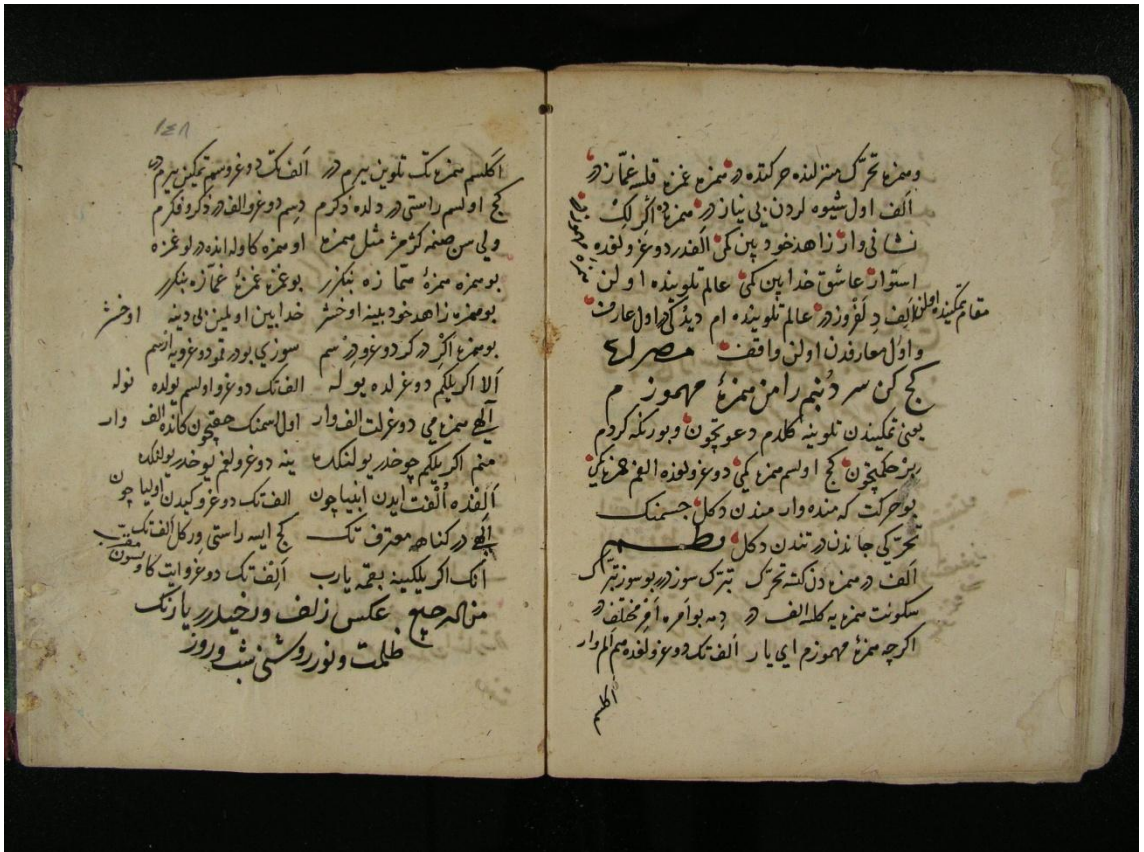 وهمزه تحرك منزلنده حركتده در همزه غمزه قلسه غماز در
الف اول شيوه لردن بى نياز در همزه ده اكر لك
نشانى وار زاهد خود بين كمى الفدر دوغرولغده
استوار عاشق خدا بين كمى عالم تلوينده اولن
همزه مهموز در
مقام تمكينده اولن الف دلفروز در عالم تلوينده ام ديدكى در اول عارف
واول معارفدن اولن واقف مصرلع
كج كن سر دنبم را من همزهٔ مهموزم
يعنى تمكيندن تلوينه كلدم دعويچون وبو رنكه كردم
رنز حكمچون كج اولسم همزه كمى دوغرولغده الفم همزه كمى
بو حركت كه منده وار مندن دكل جسمنك
تحركى جاندن در تندن دكل نظم
الف در همزه دن كشته تحرك تبرك سوز در بو سوز تبرك
سكونت همزه يه كله الف در دمه بو امره آخر مختلف در
اكرچه همزهٔ مهموزم اى يار الف تك دوغرولغده هم الم وار
اكلسم
١٤٨
اكلسم همزه تك تلوين يرم در الف تك دوغروسم تمكين يرم در
كج اولسم راستى در دلده ذكرم ديسم دوغرو الف در ذكر وفكرم
ولى سن صنمه كژمژ مثل همزه او همزه كاوله ايذه در لو غمزه
بو همزه همزهٔ همازه بنكزر بو غمزه غمزهٔ غمازه بنكزر
بو همزه زاهد خود بينه اوخشر خدا بين اولمين بى دينه اوخشر
بو همزه اكر در كر دوغرودر سم سوزى بودر قمو دوغرويه ارسم
الا اكر يلكم دوغرلده يوله الف تك دوغرو اولسم يولده نوله
الهى همزه مى دوغرلت الف وار اول اسمنك حقيچون كانده الف وار
منم اكر يلكم چوخدر يولنكده ينه دوغرولغم يوخدر يولنكده
الفده الفت ايدن انبيا چون الف تك دوغرو كيدن اوليا چون
الهى در كناهه معترف تك كج ايسه راستى ور كل الف تك
انك اكر يلكينه بقمه يارب الف تك دوغرو ايت كاوسون مقرب
من اله جميع عكس زلف ورخيدر يازنك
ظلمت ونور روشنى شب وروز